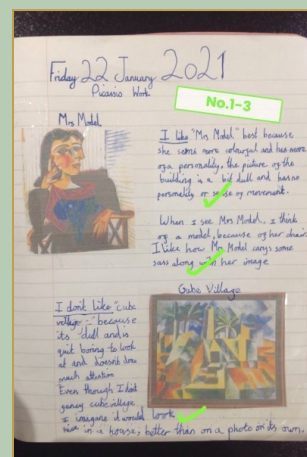 Friday 22 January 2021
Picasso Work
No.1-3
Mrs Model
I like "Mrs Model" best because
she seems more colourful and has more
of a personality, the picture of the
building is a bit dull and has no
personality or sense of movement.
When I see Mrs Model, I think
of a model, because of her chair.
I like how Mrs Model carrys some
sass along with her image
Cube Village
I don't like "cube
village" because
its dull and is
quit boring to look
at and doesn't
much attention
Even thorugh I dont
cube village
I imagane it would look
in a house, better than on a photo on its own.